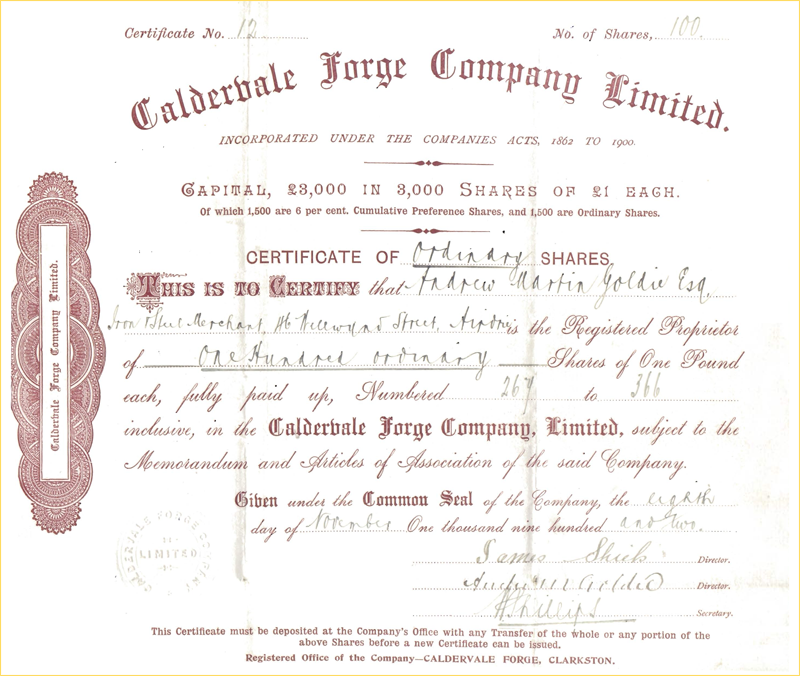 Certificate No. 12 No. of Shares, 100.
Caldervale Forge Company Limited.
INCORPORATED UNDER THE COMPANIES ACTS, 1862 TO 1900.
CAPITAL, £3,000 IN 3,000 SHARES OF £1 EACH.
Of which 1,500 are 6 per cent. Cumulative Preference Shares, and 1,500 are Ordinary Shares.
CERTIFICATE OF Ordinary SHARES.
THIS IS TO CERTIFY that Andrew Martin Goldie Esq.
Iron & Steel Merchant, Street, Airdrie is the Registered Proprietor
of One Hundred ordinary Shares of One Pound
each, fully paid up, Numbered 267 to 366
inclusive, in the Caldervale Forge Company, Limited, subject to the
Memorandum and Articles of Association of the said Company.
Given under the Common Seal of the Company, the eighth
day of November One thousand nine hundred and two.
James Director.
Andw M Goldie Director.
Phillips Secretary.
This Certificate must be deposited at the Company's Office with any Transfer of the whole or any portion of the
above Shares before a new Certificate can be issued.
Registered Office of the Company—CALDERVALE FORGE, CLARKSTON.
Caldervale Forge Company Limited.
CALDERVALE FORGE COMPANY
LIMITED